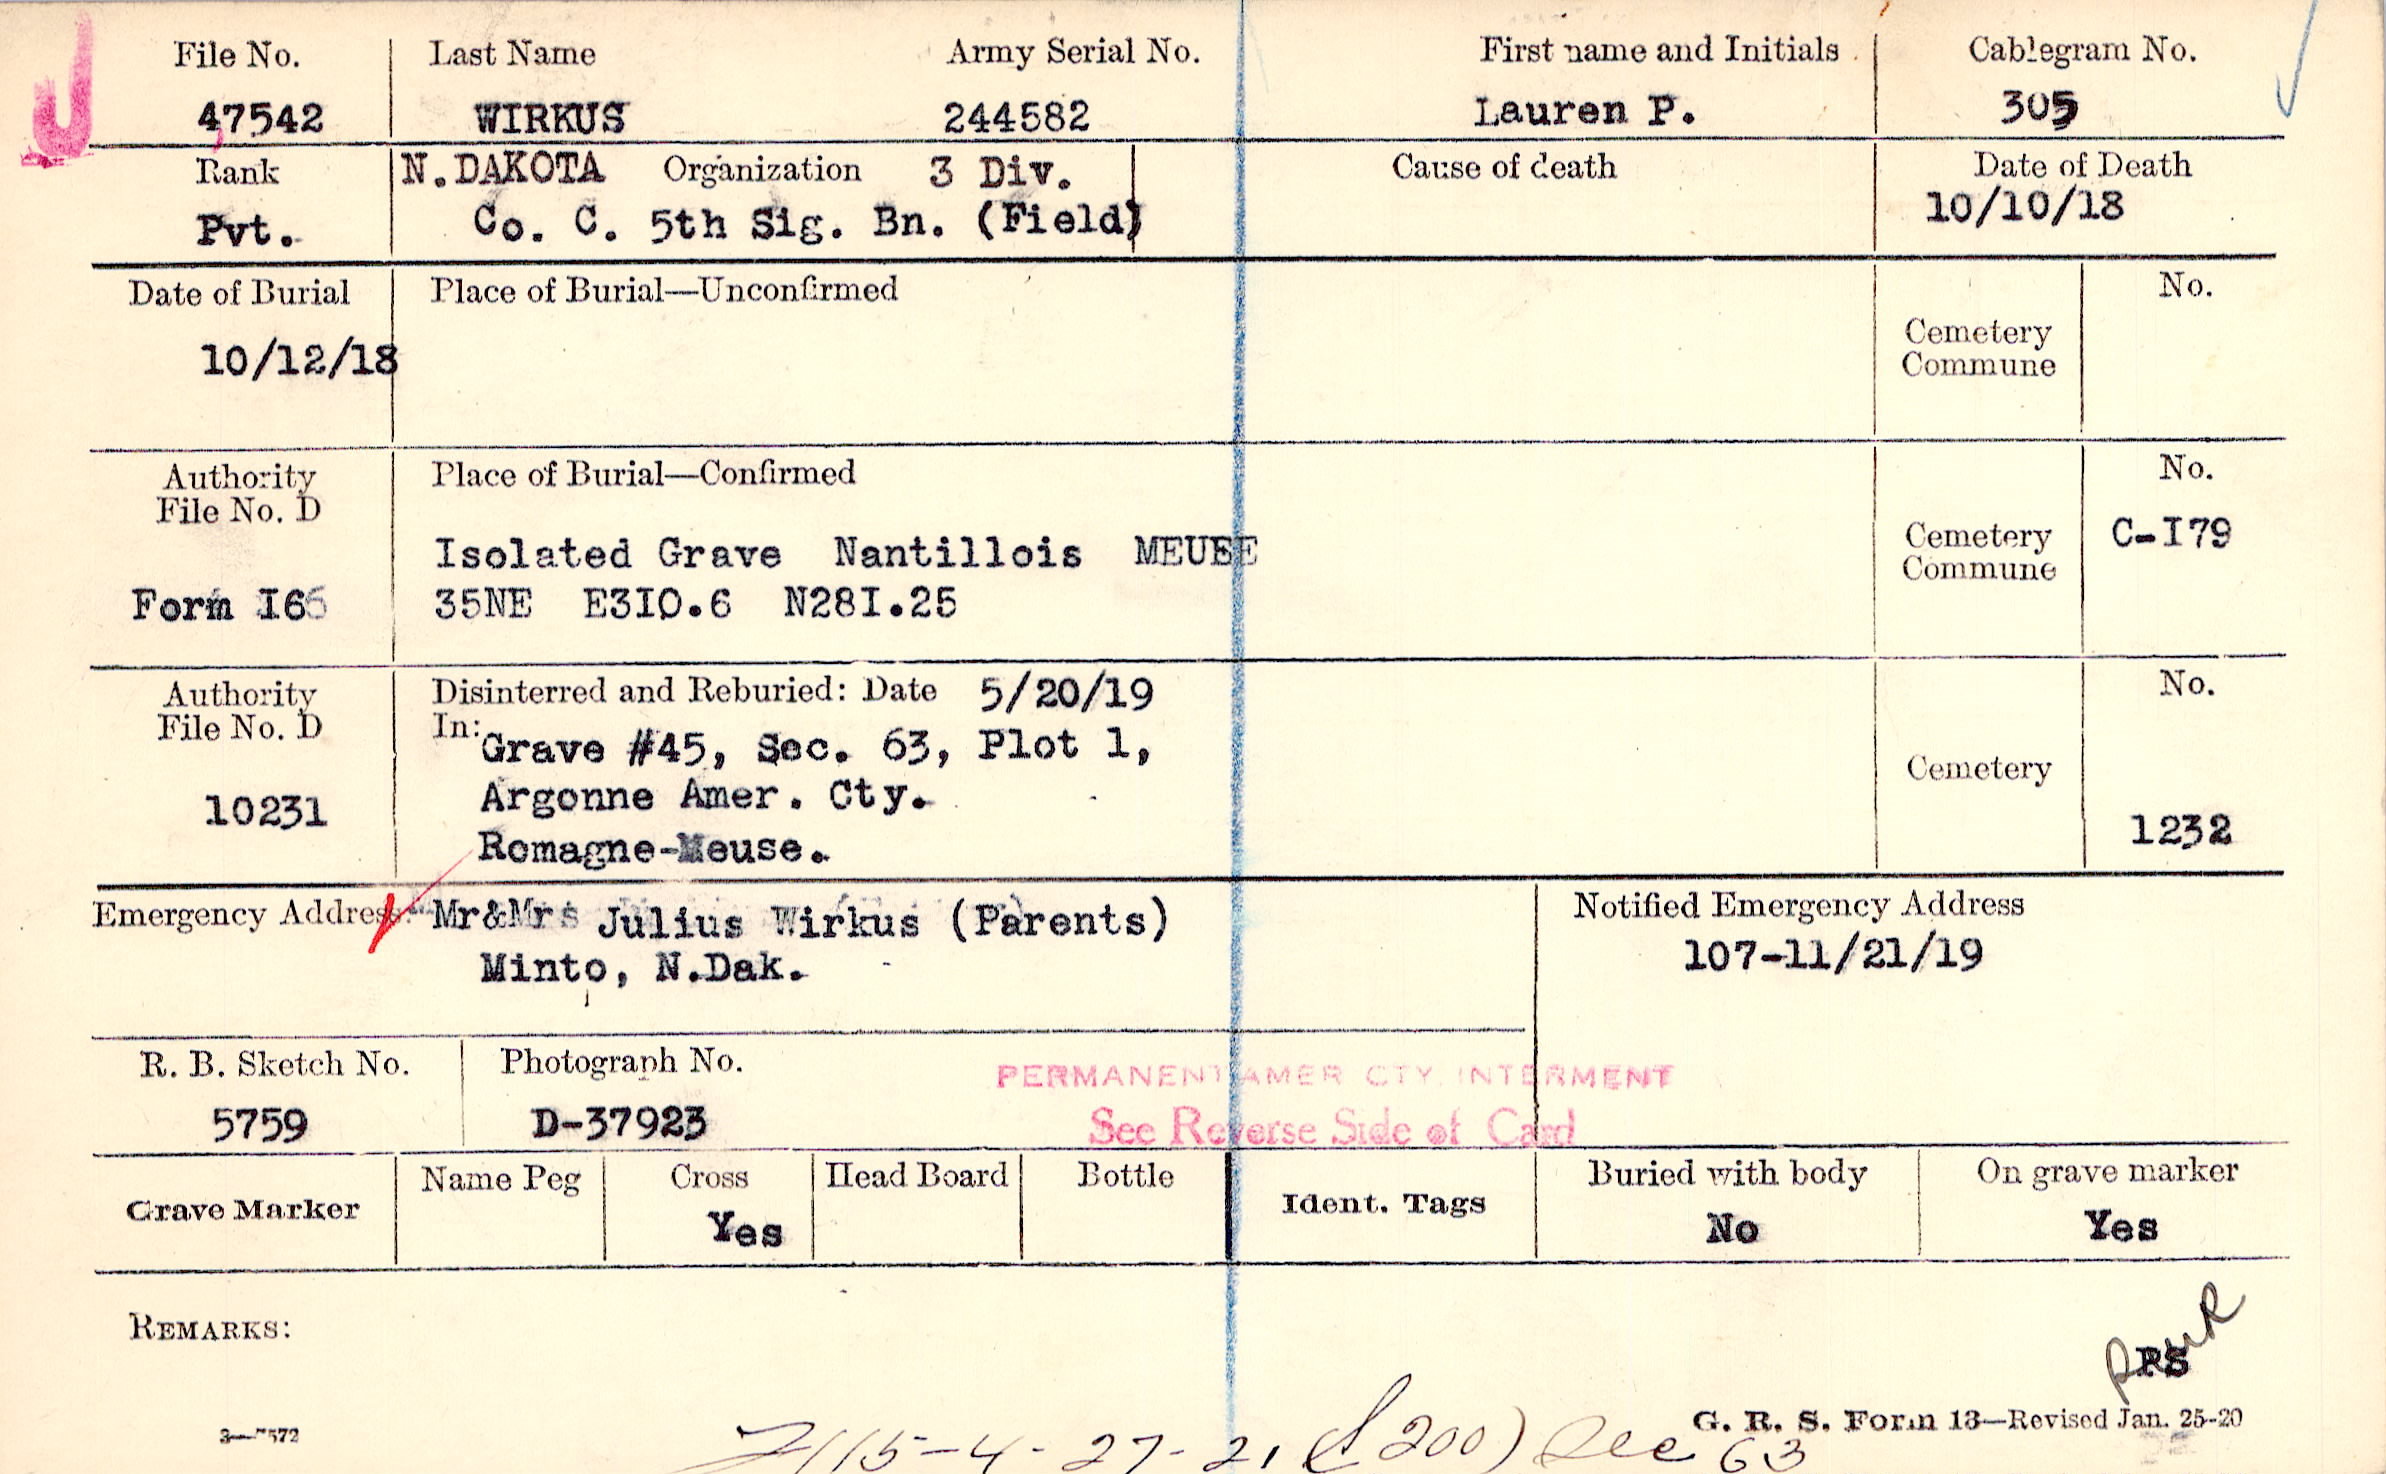 File No. Last Name Army Serial No. First name and Initials Cablegram No.
47542 WIRKUS 244582 Lauren P. 305
Rank N.DAKOTA Organization 3 Div. Cause of death Date of Death
Pvt. Co. C. 5th Sig. Bn. (Field) 10/10/18
Date of Burial Place of Burial—Unconfirmed No.
10/12/18 Cemetery
Commune
Authority Place of Burial—Confirmed No.
File No. D
Isolated Grave Nantillois MEUSE Cemetery C-I79
Commune
Form I66 35NE E3I0.6 N28I.25
Authority Disinterred and Reburied: Date 5/20/19 No.
File No. D In: Grave #45, Sec. 63, Plot 1,
10231 Argonne Amer. Cty. Cemetery
Romagne-Meuse. 1232
Emergency Address: Mr&Mrs Julius Wirkus (Parents) Notified Emergency Address
Minto, N.Dak. 107-11/21/19
R. B. Sketch No. Photograph No. PERMANENT AMER CTY INTERMENT
5759 D-37923 See Reverse Side of Card
Grave Marker Name Peg Cross Head Board Bottle Ident. Tags Buried with body On grave marker
Yes No Yes
REMARKS:
PS
G. R. S. Form 13—Revised Jan. 25-20
3—7572
115-4-27-21 (200) Sec 63